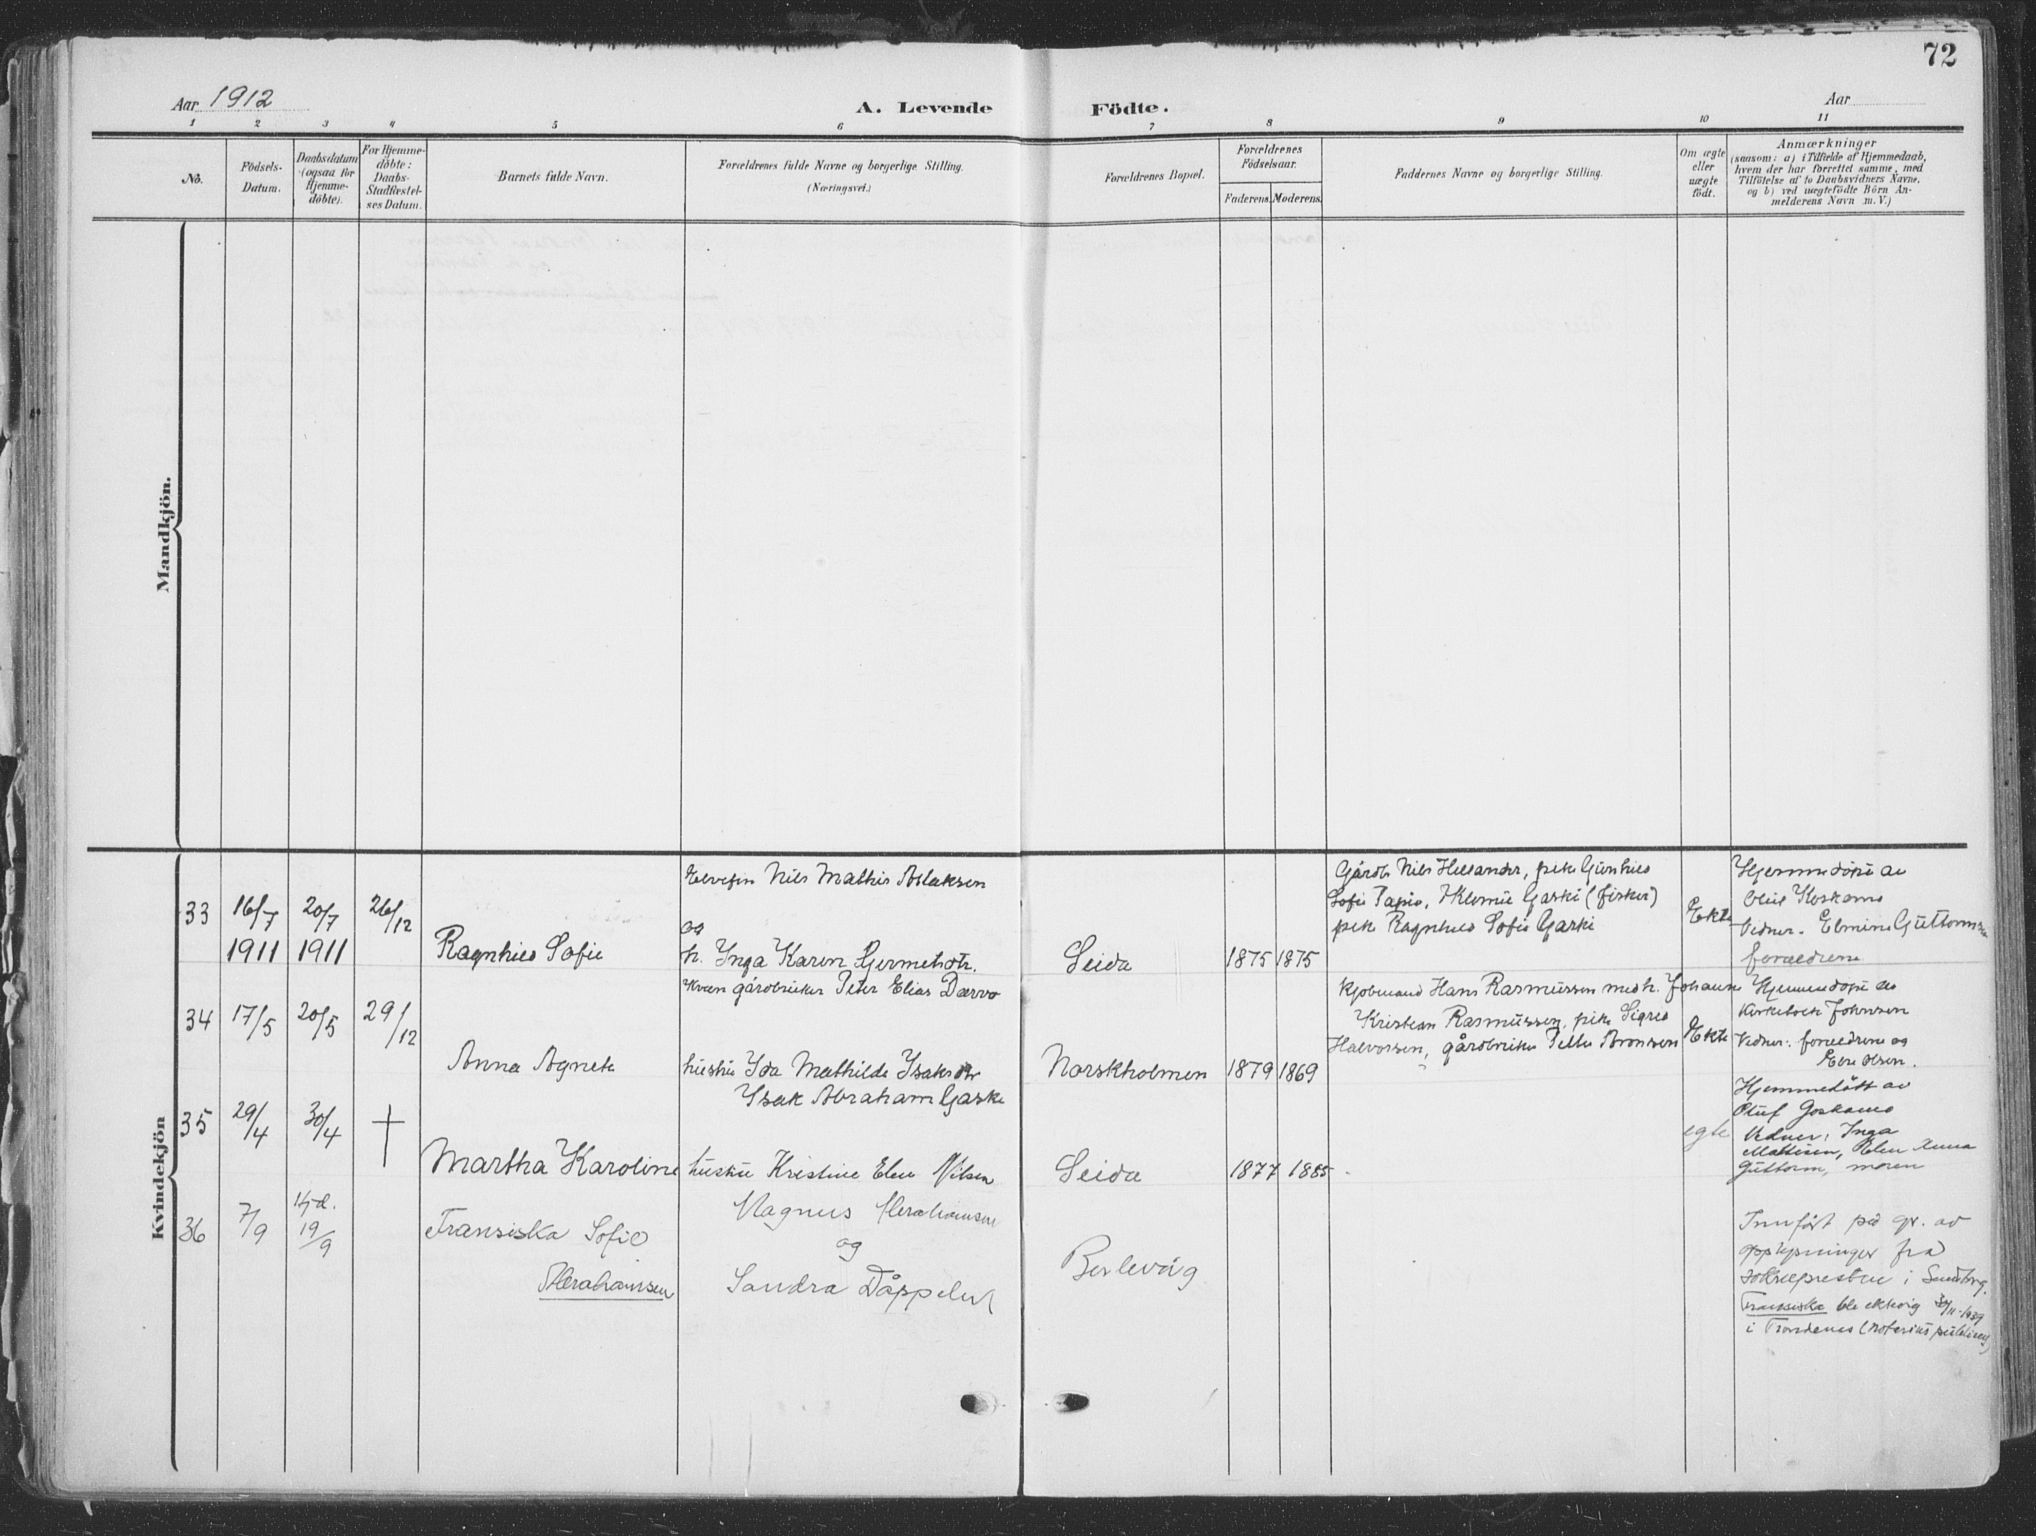 72
Aar 1912
A. Levende Födte.
Aar
1 2 3 4 5 6 7 8 9 10 11
No.
Födsels-
Datum.
Daabsdatum
(ogsaa for
Hjemme-
döbte).
For Hjemme-
döbte:
Daabs-
Stadfæstel-
ses Datum.
Barnets fulde Navn.
Forældrenes fulde Navne og borgerlige Stilling.
(Næringsvei.)
Forældrenes Bopæl.
Forældrenes
Födselsaar.
Faderens. Moderens.
Faddernes Navne og borgerlige Stilling.
Om ægte
eller
uægte
födt.
Anmærkninger
(saasom: a) i Tilfælde af Hjemmedaab,
hvem der har forrettet samme, med
Tilföielse af to Daabsvidners Navne,
og b) ved uægtefödte Börn An-
melderens Navn m. V.)
Mandkjön.
Kvindekjön
33
16/7
1911
20/7
1911
26/12
Ragnhild Sofie
Nils Mathis Aslaksen
og
h. Inga Karen Germetsdtr.
Seida
1875 1875
Gårdb. Nils Helander, pike Gunhild
Sofie Tapio, Klemet Gaski (fisker)
pike Ragnhild Sofie Gaski
Ekte
Hjemmedøpt av
Oluf Koskamo
Vidner. Elmine Guttormsen
forældrene
34
17/5
20/5
29/12
Anna Agnete
kvæn gårdbruker Peter Elias Dærvo
hustru Ida Mathilde Isaksdtr
Norskholmen
1879 1869
Kjøbmand Hans Rasmussen med h. Johanne
Kristian Rasmussen, pike Sigrid
Halvorsen, gårdbruker Petter Aronsen
Ekte
Hjemmedøpt av
Kirkebok Johnsen
Vidner: forældrene og
Olsen.
35
29/4
30/4
†
Martha Karoline
Isak Abraham Gaski
hustru Kristine Elen Nilsen
Seida
1877 1885
egte
Hjemmedöbt av
Oluf Goskamo
Vidner: Inga
Mathisen, Elen Anna
Guttorm, moren
36
7/9
19/9
Fransiska Sofie
Abrahamsen
Magnus Abrahamsen
og
Sandra Dåppelus
Berlevåg
Innført på gr. av
opplysninger fra
soknepresten i
Fransiska ble ektevig 30/11-1939
i Trondenes (notarius publicus)